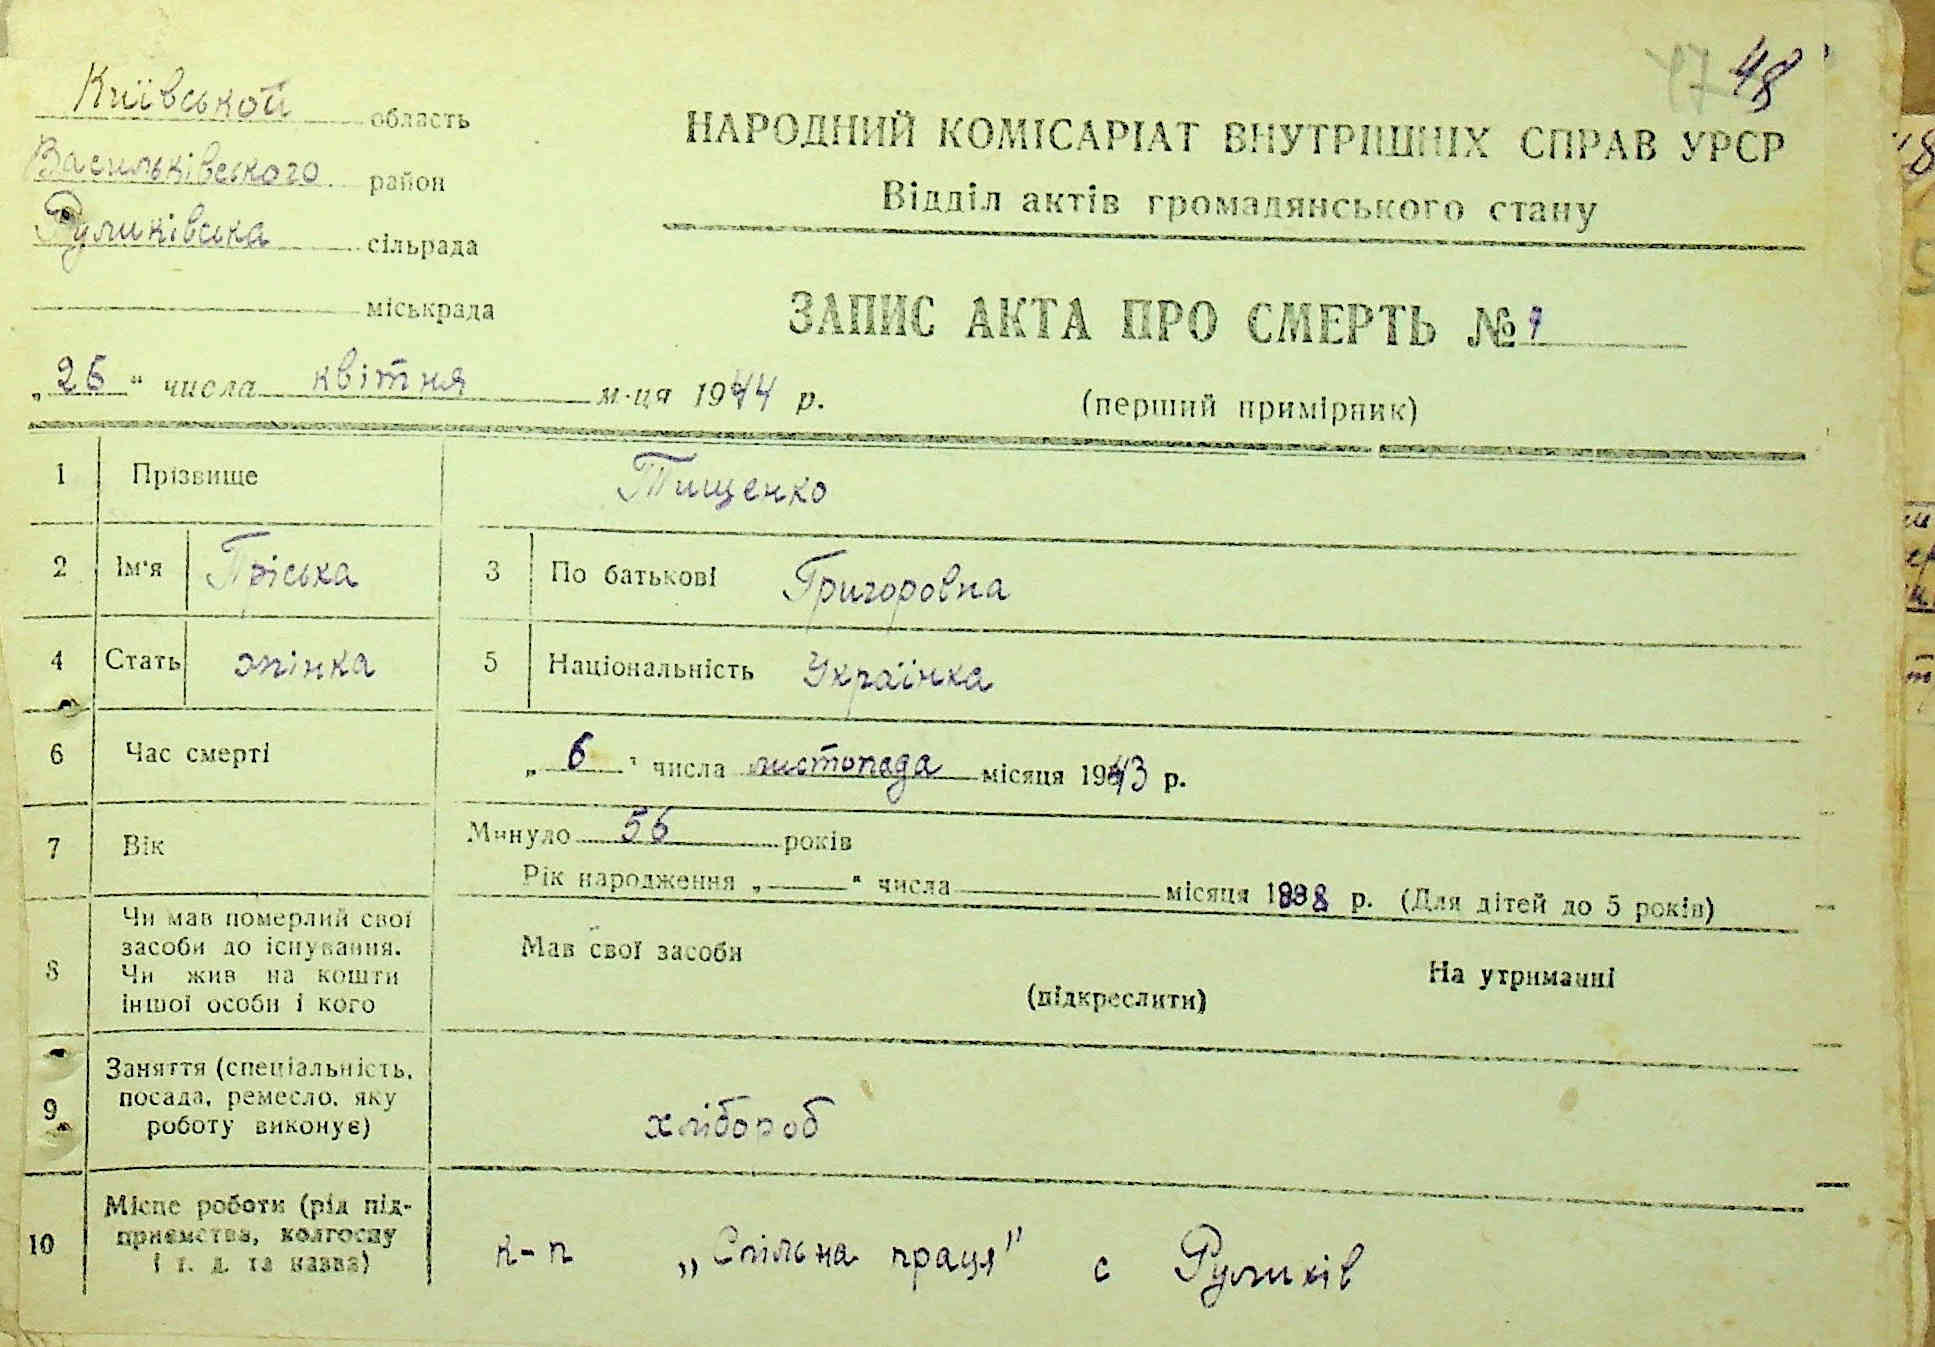 47 48
Київської область
Васильківського район
Руликівська сільрада
міськрада
НАРОДНИЙ КОМІСАРІАТ ВНУТРІШНІХ СПРАВ УРСР
Відділ актів громадянського стану
ЗАПИС АКТА ПРО СМЕРТЬ №
„26“ числа квітня м-ця 1944 р.
(перший примірник)
1 Прізвище Тищенко
2 Ім'я Пріська 3 По батькові Григоровна
4 Стать жінка 5 Національність Українка
6 Час смерті „6" числа листопада місяця 1943 р.
7 Вік Минуло 56 років
Рік народження „ “ числа місяця 1888 р. (Для дітей до 5 років)
8 Чи мав померлий свої
засоби до існування.
Чи жив на кошти
іншої особи і кого
Мав свої засоби
(підкреслити)
На утриманні
9 Заняття (спеціальність,
посада, ремесло, яку
роботу виконує)
хлібороб
10 Місце роботи (рід під-
приємства, колгоспу
і т. д. та назва)
к-п „Спільна праця" с Руликів